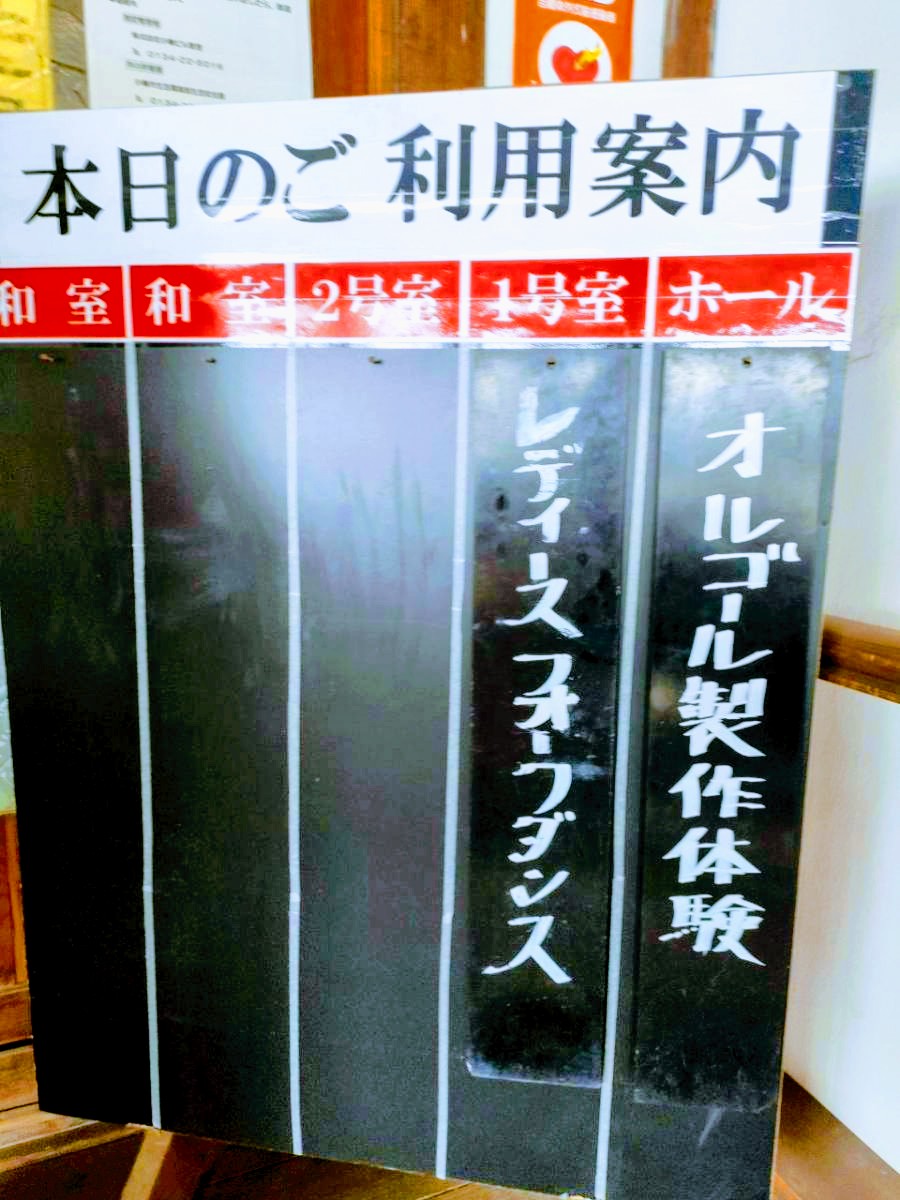 本日のご利用案内
ホール
1号室
2号室
和室
和室
オルゴール製作体験
レディースフォークダンス